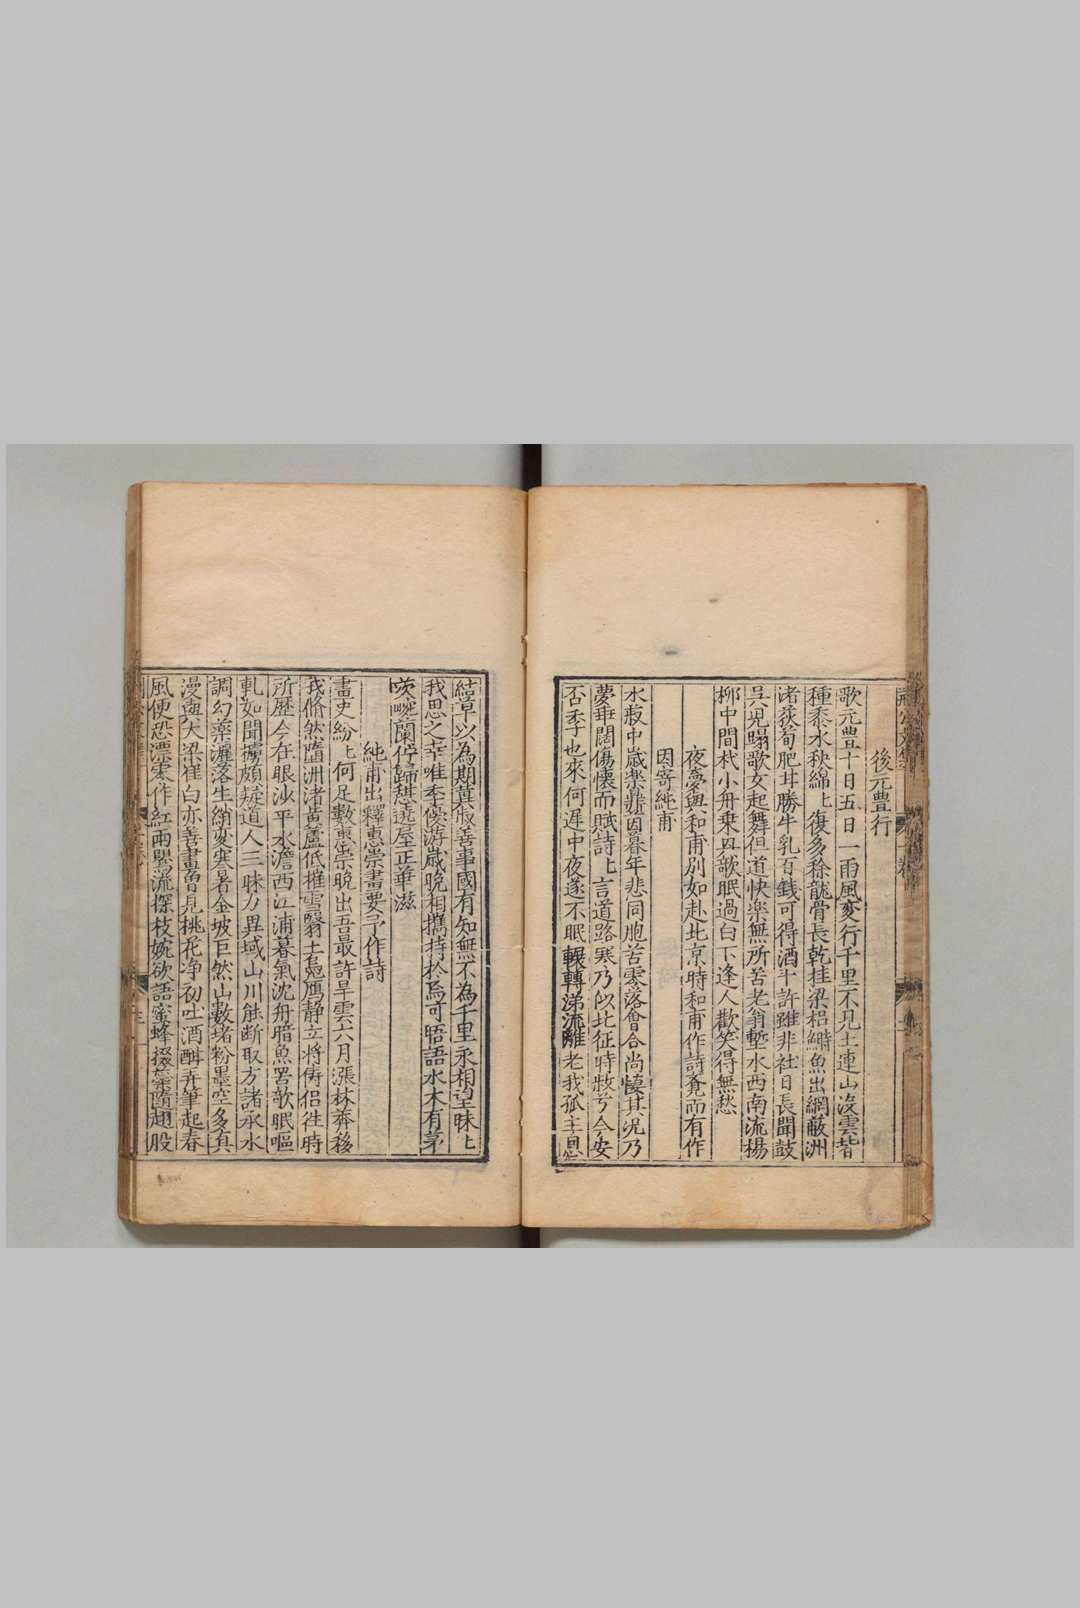 後元豊行
歌元豊十日五日一雨風麥行千里不見土連山沒雲皆
種黍水秧綿上復多稌龍骨長乾挂梁梠鰣魚出網蔽洲
渚荻荀肥甘勝牛乳百錢可得酒斗許雖非社日長聞鼓
吳兒蹋歌女起舞但道快樂無所苦老翁塹水西南流楊
栁中間杙小舟乗興欹眠過白下逢人歡笑得無愁
夜夢與和甫別如赴北京時和甫作詩覺而有作
因寄純甫
水菽中歲樂鼎茵暮年悲同胞苦零落會合尚悽其況乃
夢乖闊傷懷而賦詩上言道路寒乃似北征時教兮今安
否季也來何遲中夜遂不眠輾轉涕流離老我孤主恩
結草以為期冀叔善事國有知無不為千里永相望昧上
我思之幸唯季優游歲晚相攜持於焉可晤語水木有茅
茨畹蘭佇歸憩遶屋正華滋
純甫出釋惠崇畫要予作詩
畫史紛上何足數惠崇晚出吾最許旱雲六月漲林莽移
我翛然墮洲渚黃蘆低摧雪翳土鳧鴈靜立將儔侶徃時
所歷今在眼沙平水澹西江浦暮氣沈舟暗魚罟欹眠嘔
軋如聞擄頗疑道人三昧力異域山川能斷取方諸承水
調幻藥灑落生綃變寒暑金坡巨然山數堵粉墨空多真
漫與大梁崔白亦善畫曽見桃花净初吐酒酣弄筆起春
風便恐漂零作紅雨鸎流探枝婉欲語蜜蜂掇蘂隨趐股